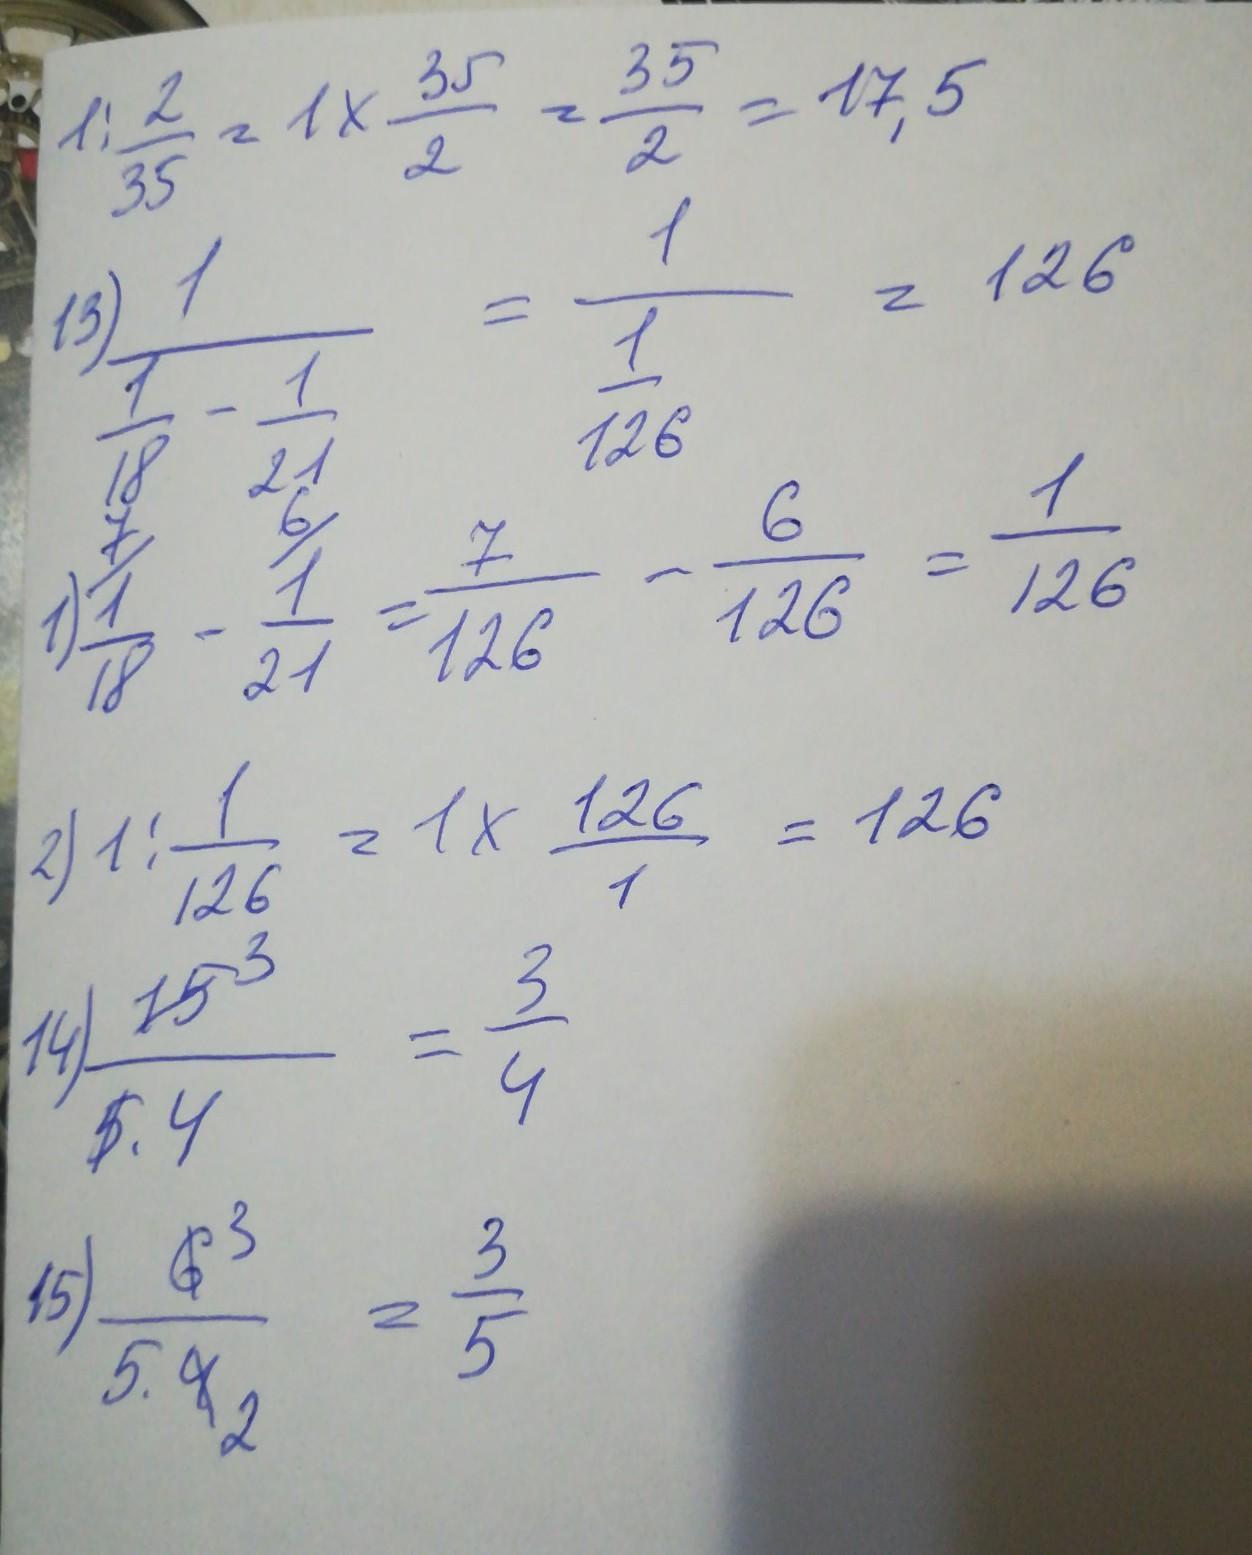 1 : 2/35 = 1 x 35/2 = 35/2 = 17,5
13) 1/(1/18 - 1/21) = 1/(1/126) = 126
1) 7/ 1/18 - 6/ 1/21 = 7/126 - 6/126 = 1/126
2) 1 : 1/126 = 1 x 126/1 = 126
14) 15 3/(5.4) = 3/4
15) 6 3/(5.4 2) = 3/5